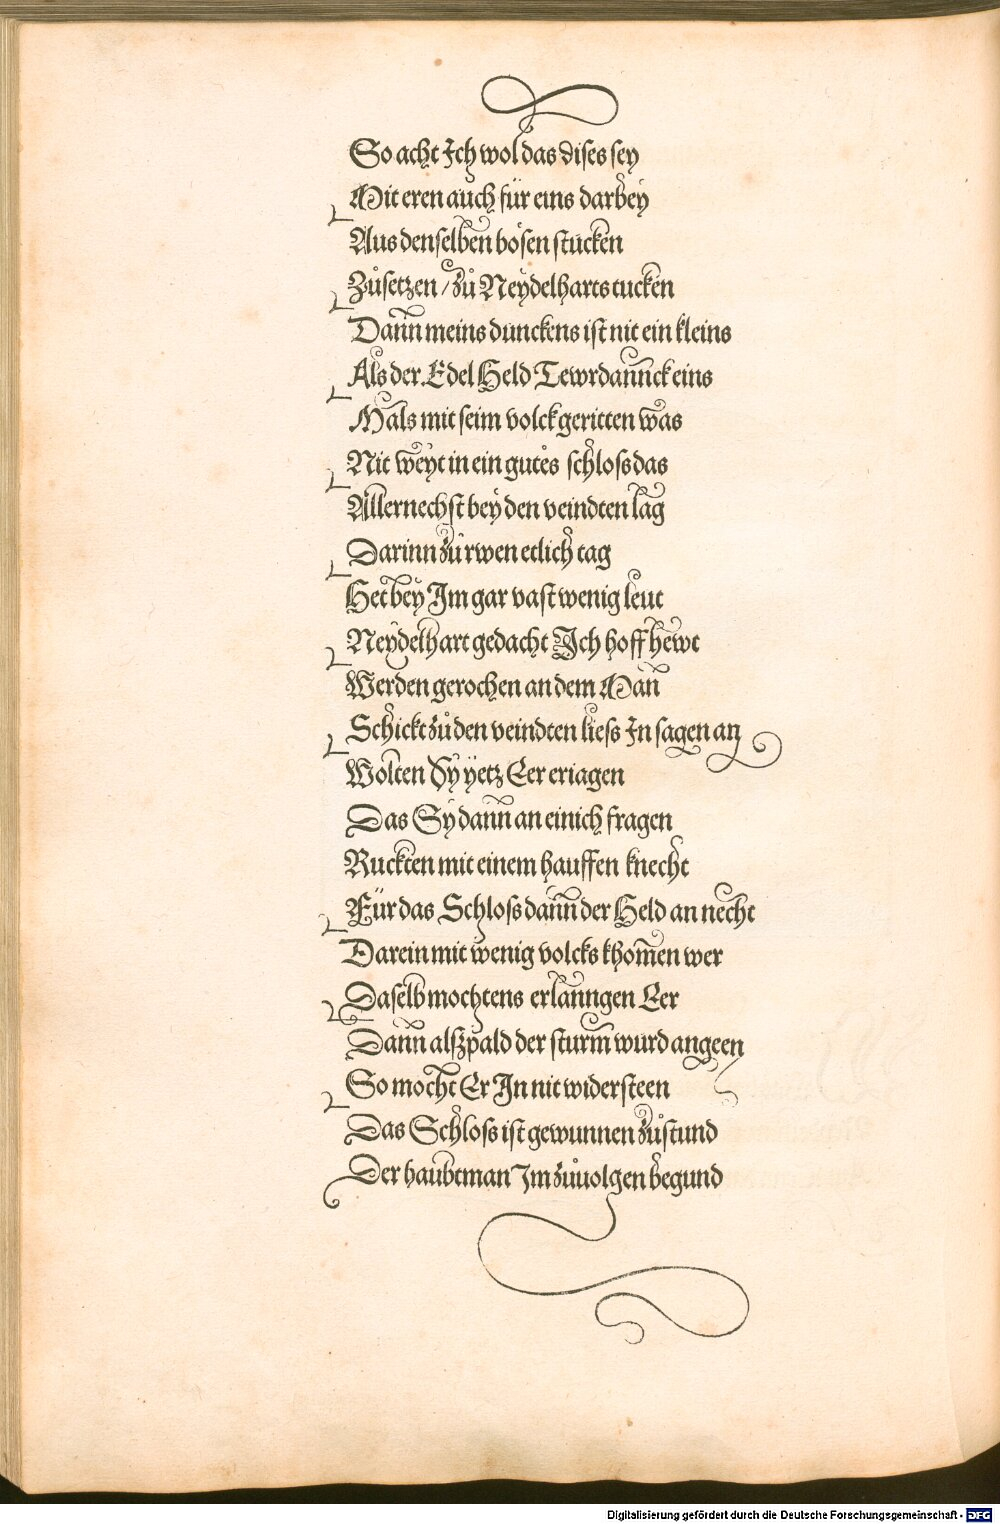 So acht Ich wol das dises sey
Mit eren auch für eins darbey
Aus denselben bösen stucken
Zůsetzen / zů Neydelharts tucken
Dann meins dunckens ist nit ein kleins
Als der Edel Held Tewrdannck eins
Mals mit seim volck geritten was
Nit weyt in ein gutes schloss das
Allernechst bey den veindten lag
Darinn zů rwen etlich tag
Het bey Im gar vast wenig leut
Neydelhart gedacht Ich hoff hewt
Werden gerochen an dem Man
Schickt zů den veindten liess In sagen an
Wolten Sy yetz Eer eriagen
Das Sy dann an einich fragen
Ruckten mit einem hauffen knecht
Für das Schloss dann der Held an necht
Darein mit wenig volcks khomen wer
Daselb mochtens erlanngen Eer
Dann alsspald der sturm wurd angeen
So mocht Er In nit widersteen
Das Schloss ist gewunnen zů stund
Der haubtman Im zůuolgen begund
Digitalisierung gefördert durch die Deutsche Forschungsgemeinschaft - DFG